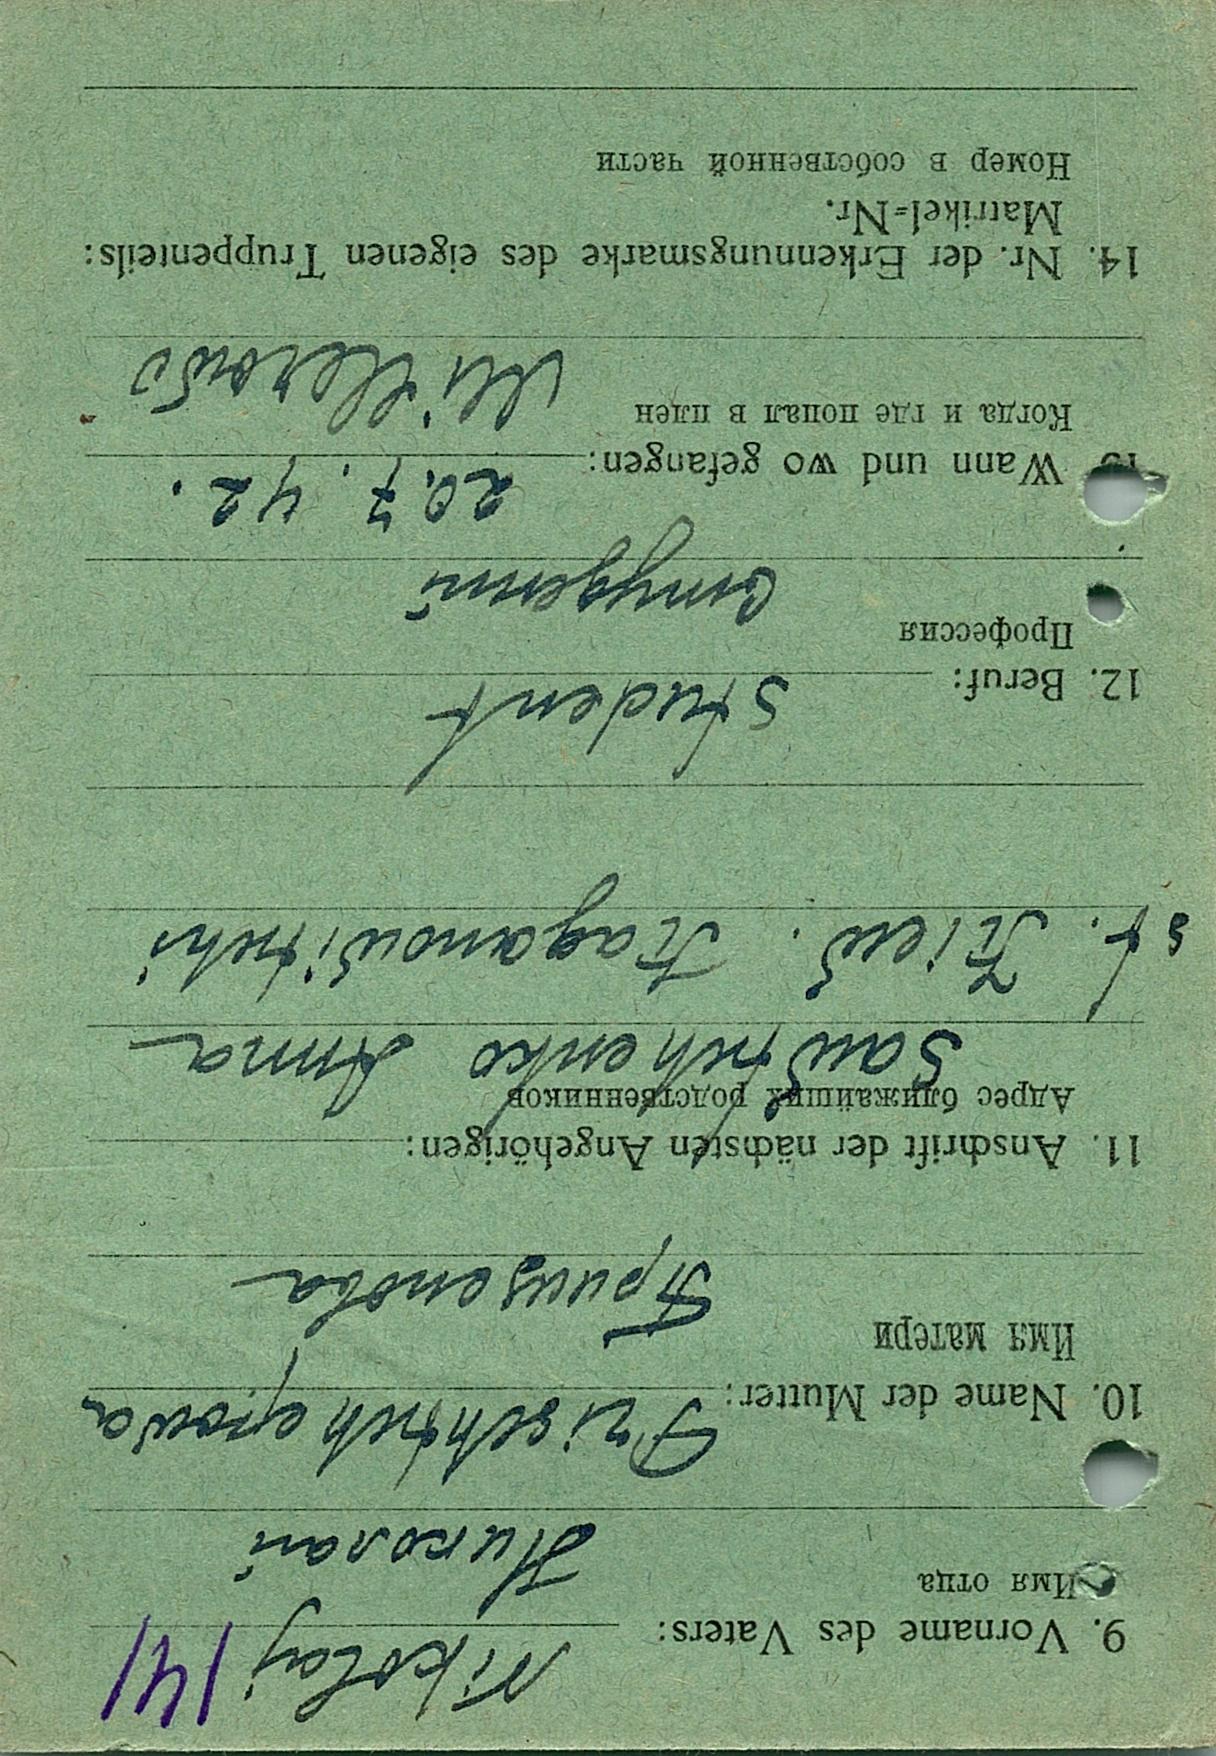 141
9. Vorname des Vaters: Nikolaj
Имя отца
Николай
10. Name der Mutter: Prischtschepowa
Имя матери
11. Anschrift der nächsten Angehörigen:
Адрес ближайших родственников
Sawtschenko Anna
st. Kiew. Kaganowitschi
12. Beruf: Student
Профессия
Студент
Wann und wo gefangen: 20.7.42.
Когда и где попал в плен
Millerowo
14. Nr. der Erkennungsmarke des eigenen Truppenteils:
Matrikel=Nr.
Номер в собственной части